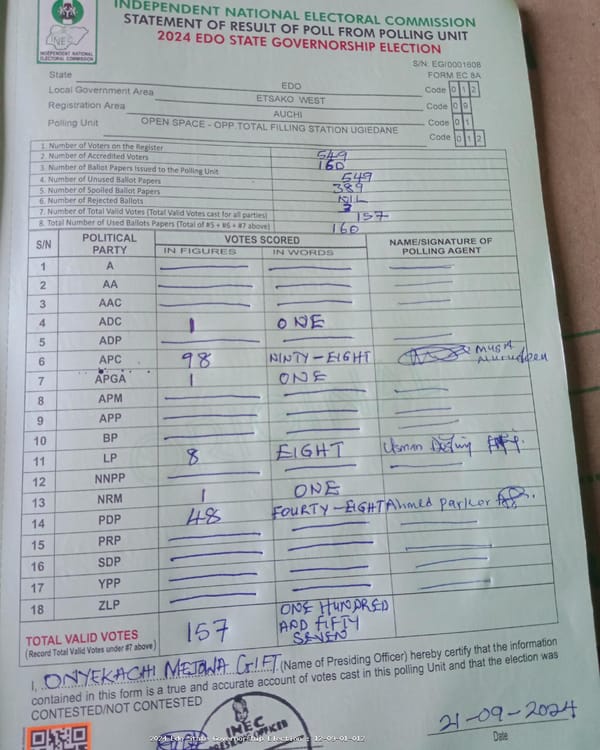 INDEPENDENT NATIONAL ELECTORAL COMMISSION
STATEMENT OF RESULT OF POLL FROM POLLING UNIT
2024 EDO STATE GOVERNORSHIP ELECTION
INEC
INDEPENDENT NATIONAL ELECTORAL COMMISSION
S/N: EG/0001608
FORM EC 8A
State EDO Code 0 1 2
Local Government Area ETSAKO WEST Code 0 9
Registration Area AUCHI Code 0 1
Polling Unit OPEN SPACE - OPP.TOTAL FILLING STATION UGIEDANE Code 0 1 2
1. Number of Voters on the Register 549
2. Number of Accredited Voters 160
3. Number of Ballot Papers Issued to the Polling Unit 549
4. Number of Unused Ballot Papers 389
5. Number of Spoiled Ballot Papers NIL
6. Number of Rejected Ballots 3
7. Number of Total Valid Votes (Total Valid Votes cast for all parties) 157
8. Total Number of Used Ballots Papers (Total of #5 + #6 + #7 above) 160
S/N POLITICAL PARTY VOTES SCORED NAME/SIGNATURE OF POLLING AGENT
IN FIGURES IN WORDS
1 A
2 AA
3 AAC
4 ADC 1 ONE
5 ADP
6 APC 98 NINTY-EIGHT MUSA
7 APGA 1 ONE
8 APM
9 APP
10 BP
11 LP 8 EIGHT Usman
12 NNPP
13 NRM 1 ONE
14 PDP 48 FOURTY-EIGHT Ahmed
15 PRP
16 SDP
17 YPP
18 ZLP
TOTAL VALID VOTES 157 ONE HUNDRED AND FIFTY SEVEN
(Record Total Valid Votes under #7 above)
I, ONYEKACHI METOWA GIFT (Name of Presiding Officer) hereby certify that the information
contained in this form is a true and accurate account of votes cast in this polling Unit and that the election was
CONTESTED/NOT CONTESTED
21-09-2024
Date
2024 Edo State Governorship Election : 12-09-01-012